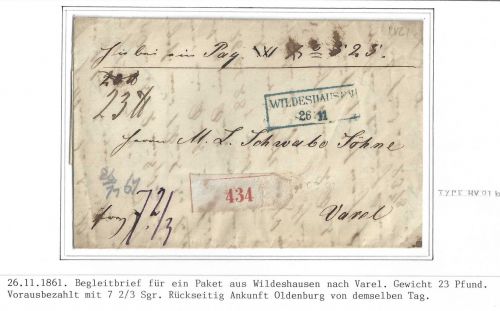 Hie bei ein Paq.
WILDESHAUSEN
26 11
23 ℔
Herrn M. L. Schwabe Söhne
434
7 2/3
Varel
26.11.1861. Begleitbrief für ein Paket aus Wildeshausen nach Varel. Gewicht 23 Pfund.
Vorausbezahlt mit 7 2/3 Sgr. Rückseitig Ankunft Oldenburg von demselben Tag.